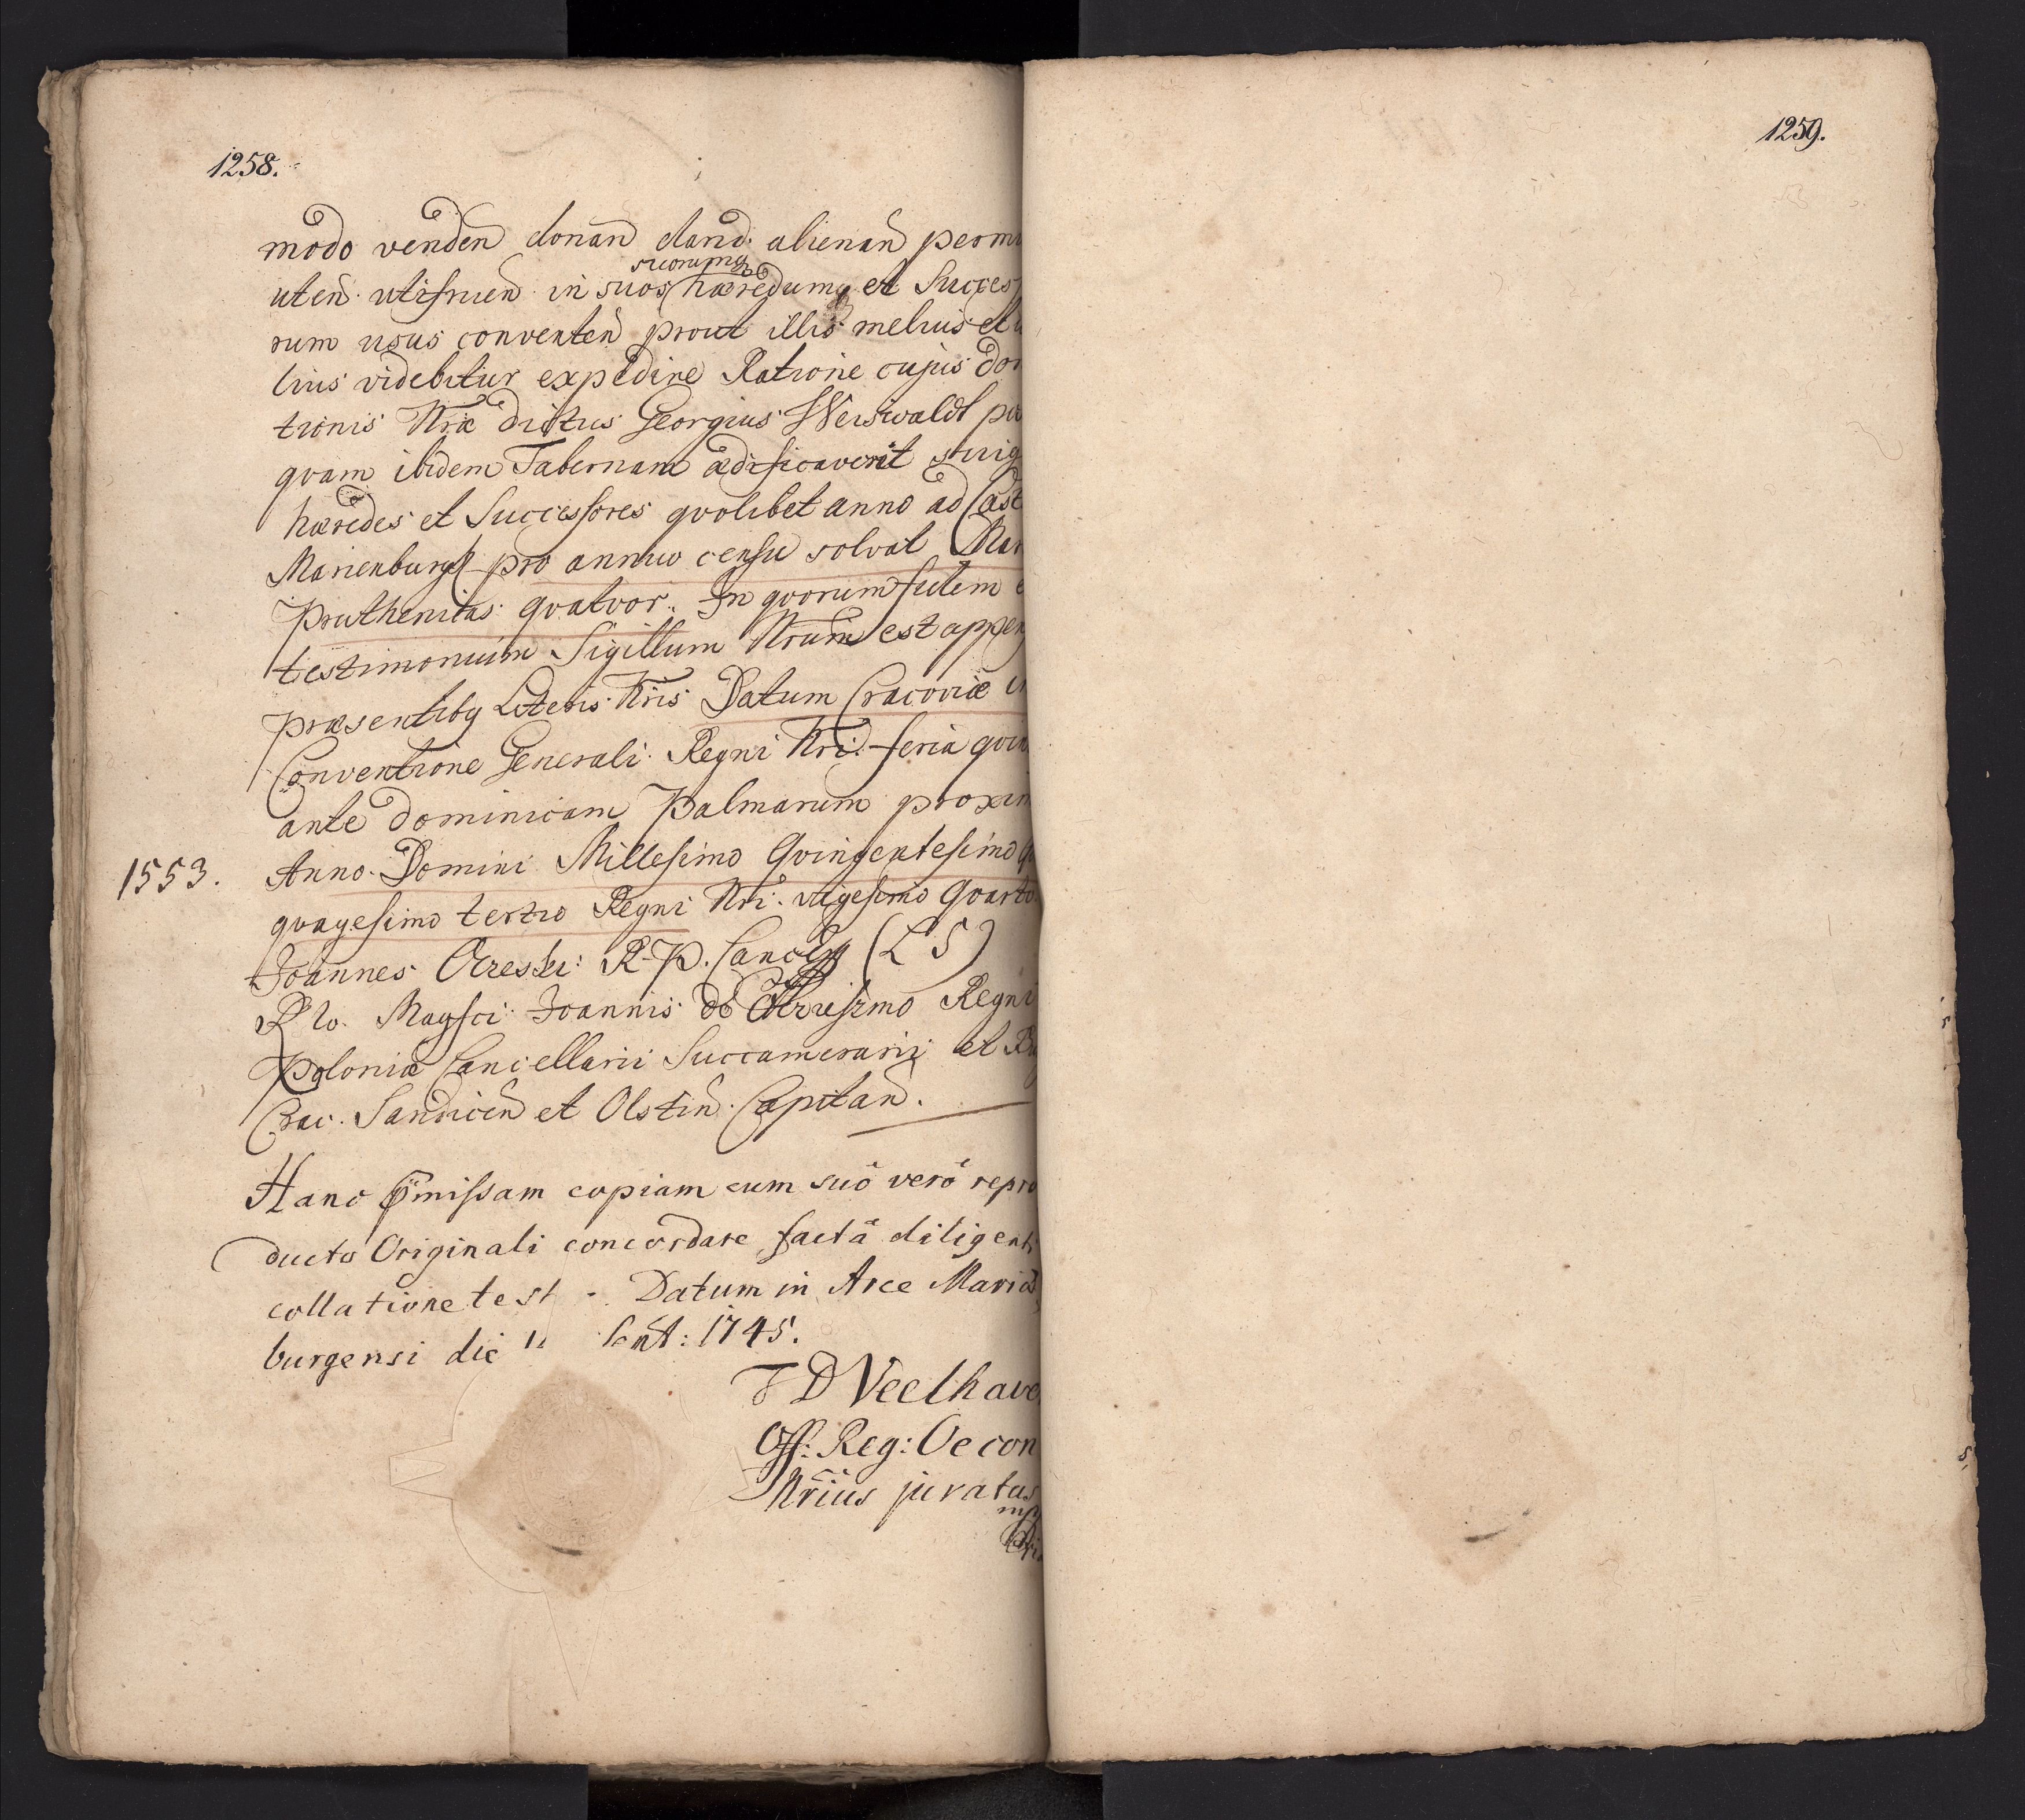 1258.
modo vendeñ donañ dand. alienañ permu
uteñ. utifrueñ in suos suorumq hæredumq et Succes
rum usus converteñ prout illis melius et u
lius videbitur expedire Ratione cujus don
tionis Nræ dictus Georgius Weiswaldt po
qvam ibidem Tabernam ædificaverit suiq
hæredes et Successores qvolibet anno ad Cast
Marienburg pro annuo censu solvat Mar
Pruthenitas qvatvor. In qvorum fidem e
testimonium Sigillum Nrum est appen
præsentibq Literis Nris Datum Cracoviæ in
Conventione Generali Regni Nri. feria qvin
ante dominicam Palmarum proxim
1553. Anno Domini Millesimo Qvingentesimo Qu
qvagesimo tertio Regni Nri. vigesimo Qvarto.
Joannes Ocieski R. P. Cancellg (L S)
Rlo. Magfci Joannis de Regni
Poloniæ Cancellarii Succamerarii et
Crac. Sandiceñ et Olstiñ Capitañ.
Hanc pmissam copiam cum suô verô repro
ducto Originali concordare factâ diligenti
collatione test . Datum in Arce Mariæ
burgensi die 11 1745.
D Veelhave
Off: Reg: Oecon
Nrius juratus
mp
1259.